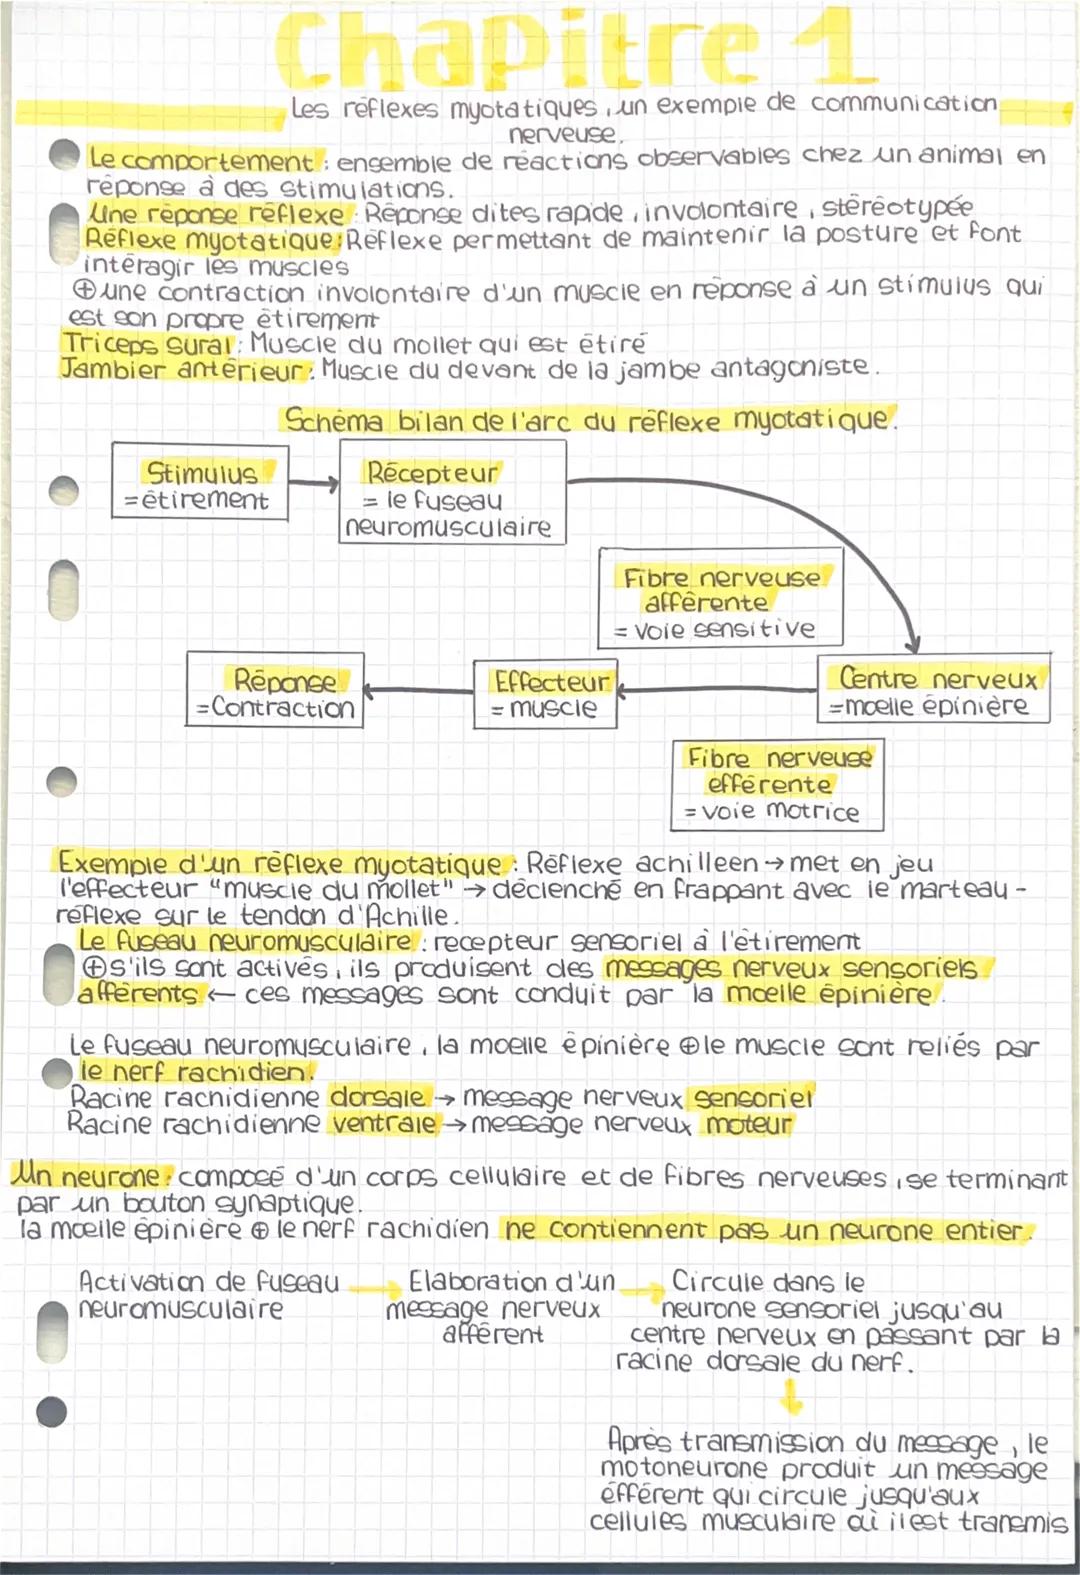 Chapitre 1
Les réflexes myotatiques, un exemple de communication
nerveuse.
Le comportement : ensemble de réactions observables chez un animal en
réponse à des stimulations.
Une réponse réflexe : Réponse dites rapide, involontaire, stéréotypée
Réflexe myotatique : Réflexe permettant de maintenir la posture et font
intéragir les muscles
⊕ une contraction involontaire d'un muscle en réponse à un stimulus qui
est son propre étirement
Triceps sural : Muscle du mollet qui est étiré
Jambier antérieur : Muscle du devant de la jambe antagoniste.
Schéma bilan de l'arc du réflexe myotatique.
Stimulus
= étirement
Récepteur
= le fuseau
neuromusculaire
Fibre nerveuse
afférente
= voie sensitive
Réponse
= Contraction
Effecteur
= muscle
Centre nerveux
= moelle épinière
Fibre nerveuse
efférente
= voie motrice
Exemple d'un réflexe myotatique : Réflexe achilleen → met en jeu
l'effecteur "muscle du mollet" → déclenché en frappant avec le marteau-
réflexe sur le tendon d'Achille.
Le fuseau neuromusculaire : recepteur sensoriel à l'étirement
⊕ s'ils sont activés, ils produisent des messages nerveux sensoriels
afférents ← ces messages sont conduit par la moelle épinière.
Le fuseau neuromusculaire, la moelle épinière ⊕ le muscle sont reliés par
le nerf rachidien.
Racine rachidienne dorsale → message nerveux sensoriel
Racine rachidienne ventrale → message nerveux moteur
Un neurone : composé d'un corps cellulaire et de fibres nerveuses, se terminant
par un bouton synaptique.
la moelle épinière ⊕ le nerf rachidien ne contiennent pas un neurone entier.
Activation de fuseau
neuromusculaire
→ Elaboration d'un
message nerveux
afférent
→ Circule dans le
neurone sensoriel jusqu'au
centre nerveux en passant par la
racine dorsale du nerf.
↓
Après transmission du message, le
motoneurone produit un message
éfférent qui circule jusqu'aux
cellules musculaire où il est transmis